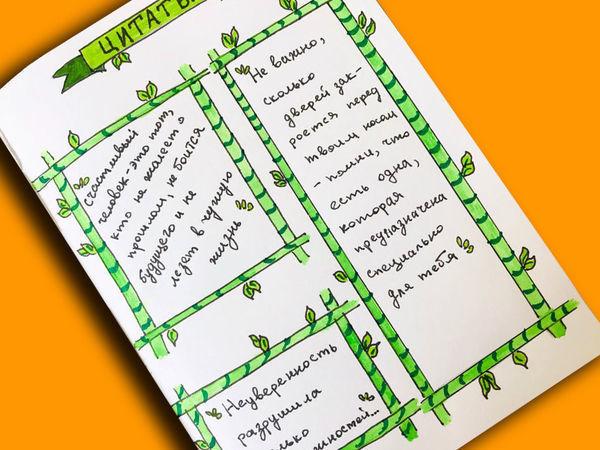 ЦИТАТЫ
счастливый
человек - это тот,
кто не жалеет о
прошлом, не боится
будущего и не
лезет в чужую
жизнь
Не важно,
сколько
дверей зак-
роется перед
твоим носом
- помни, что
есть одна,
которая
предназначена
специально
для тебя
Неуверенность
разрушила